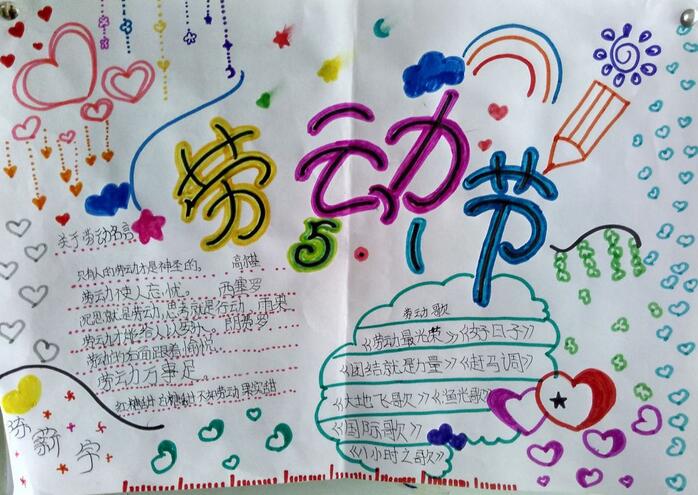 劳动节
5.1
关于劳动名言
只有人的劳动才是神圣的。 高尔基
劳动使人忘忧。 西塞罗
沉思就是劳动,思考就是行动。雨果
劳动才能给人以安乐。
劳动的后面跟着愉悦
劳动万事足
红糖甜 白糖甜 不如劳动果实甜
劳动歌
《劳动最光荣》《好日子》
《团结就是力量》《赶马调》
《大地飞歌》《渔光歌》
《国际歌》
《八小时之歌》